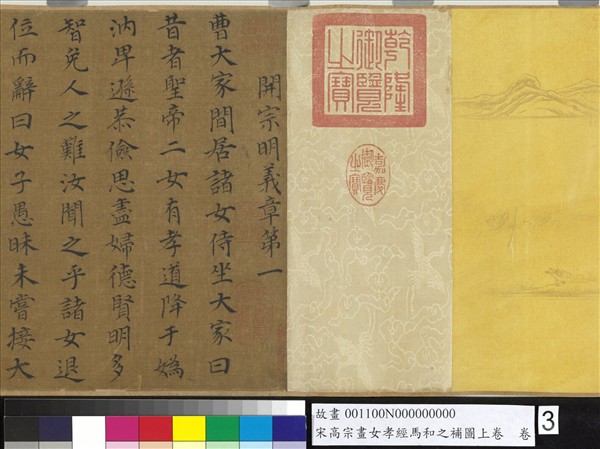 乾隆
御覽
之寶
嘉慶
御覽
之寶
開宗明義章第一
曹大家間居諸女侍坐大家曰
昔者聖帝二女有孝道降于嬀
汭卑遜恭儉思盡婦德賢明多
智免人之難汝聞之乎諸女退
位而辭曰女子愚昧未嘗接大
故畫 001100N000000000
宋高宗書女孝經馬和之補圖上卷 卷
3